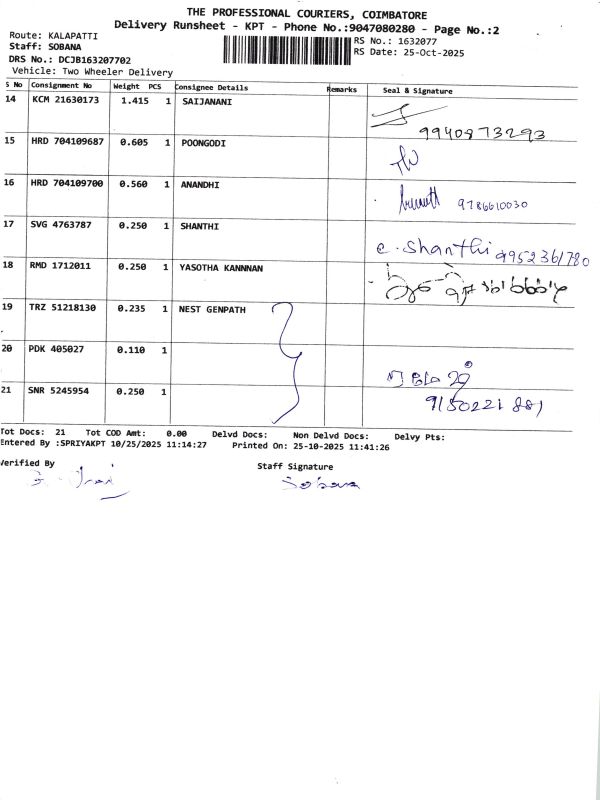 THE PROFESSIONAL COURIERS, COIMBATORE
Delivery Runsheet - KPT - Phone No.:9047080280 - Page No.:2
Route: KALAPATTI
Staff: SOBANA
RS No.: 1632077
DRS No.: DCJB163207702
RS Date: 25-Oct-2025
Vehicle: Two Wheeler Delivery
S No Consignment No Weight PCS Consignee Details Remarks Seal & Signature
14 KCM 21630173 1.415 1 SAIJANANI
9940873293
15 HRD 704109687 0.605 1 POONGODI
16 HRD 704109700 0.560 1 ANANDHI
9786610030
17 SVG 4763787 0.250 1 SHANTHI
c. Shanthi 9952361780
18 RMD 1712011 0.250 1 YASOTHA KANNNAN
19 TRZ 51218130 0.235 1 NEST GENPATH
20 PDK 405027 0.110 1
21 SNR 5245954 0.250 1
9150221881
Tot Docs: 21 Tot COD Amt: 0.00 Delvd Docs: Non Delvd Docs: Delvy Pts:
Entered By :SPRIYAKPT 10/25/2025 11:14:27 Printed On: 25-10-2025 11:41:26
Verified By
Staff Signature
Sobana